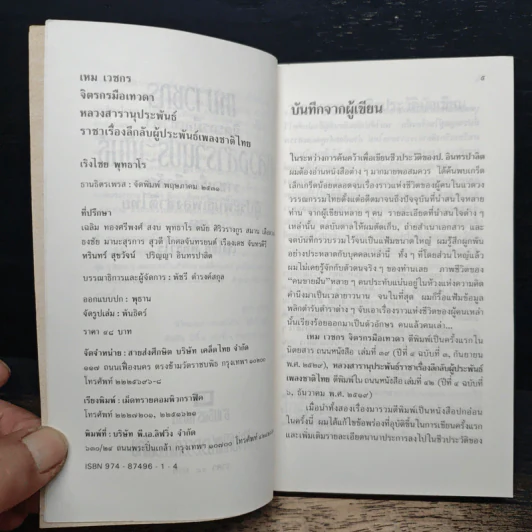 เหม เวชกร
จิตรกรมือเทวดา
หลวงสารานุประพันธ์
ราชาเรื่องลึกลับผู้ประพันธ์เพลงชาติไทย
เริงไชย พุทธาโร
ธานธิตเพรส : จัดพิมพ์ พฤษภาคม ๒๕๓๑
ที่ปรึกษา
เฉลิม ทองศรีพงศ์ สงบ พุทธาโร
ธงชัย มานะสุรการ สุวดี
หรินทร์ สุขวัจน์ ปริญญา อินทรปาลิต
บรรณาธิการและผู้จัดการ : พัชรี ดำรงค์สกุล
ออกแบบปก : พุธาน
จัดรูปเล่ม : พันธิตร์
ราคา ๔๘ บาท
จัดจำหน่าย : สายส่งศึกษิต บริษัท เคล็ดไทย จำกัด
๑๑๗ ถนนเฟื่องนคร ตรงข้ามวัดราชบพิธ กรุงเทพฯ ๑๐๒๐๐
โทรศัพท์ ๒๒๒๕๖๙๖-๘
เรียงพิมพ์ : เม็ดทรายคอมพิวกราฟิค
โทรศัพท์
พิมพ์ที่ : บริษัท พี.เอ.ลิฟวิ่ง จำกัด
๖๓๐/๒๙ ถนนพระปิ่นเกล้า กรุงเทพฯ ๑๐๗๐๐ โทรศัพท์
ISBN 974 - 87496 - 1 - 4
๕
บันทึกจากผู้เขียน
ในระหว่างการค้นคว้าเพื่อเขียนชีวประวัติของป. อินทรปาลิต
ผมต้องอ่านหนังสือต่าง ๆ มากมายพอสมควร ได้ค้นพบเกร็ด
เล็กเกร็ดน้อยตลอดจนเรื่องราวแห่งชีวิตของผู้คนในแวดวง
วรรณกรรมไทยตั้งแต่อดีตมาจนถึงปัจจุบันที่น่าสนใจหลาย
ท่าน จากผู้เขียนหลาย ๆ คน รายละเอียดที่น่าสนใจต่าง ๆ
เหล่านั้น ตลบกันตาให้ผมตัดเก็บ, ถ่ายสำเนาเอกสาร และ
จดบันทึกรวบรวมไว้จนเป็นแฟ้มขนาดใหญ่ ผมรู้สึกผูกพัน
อย่างประหลาดกับบุคคลเหล่านี้ ทั้ง ๆ ที่โดยส่วนใหญ่แล้ว
ผมไม่เคยรู้จักกับตัวตนจริง ๆ ของท่านเลย ภาพชีวิตของ
“คนขายฝัน” หลาย ๆ คนประทับแน่นอยู่ในห้วงแห่งความคิด
คำนึงมาเป็นเวลายาวนาน จนในที่สุด ผมก็รื้อแฟ้มข้อมูล
พลิกตำรับตำราต่าง ๆ จับเอาเรื่องราวแห่งชีวิตของผู้คนเหล่า
นั้นเรียงร้อยออกมาเป็นตัวอักษร คนแล้วคนเล่า...
เหม เวชกร จิตรกรมือเทวดา ตีพิมพ์เป็นครั้งแรกใน
นิตยสาร ถนนหนังสือ เล่มที่ ๓๙ (ปีที่ ๔ ฉบับที่ ๓, กันยายน
พ.ศ. ๒๕๒๙), หลวงสารานุประพันธ์ราชาเรื่องลึกลับผู้ประพันธ์
เพลงชาติไทย ตีพิมพ์ในถนนหนังสือ เล่มที่ ๔๒ (ปีที่ ๔ ฉบับที่
๖, ธันวาคม พ.ศ. ๒๕๒๙)
เมื่อนำทั้งสองเรื่องมารวมตีพิมพ์เป็นหนังสือปกอ่อน
ในครั้งนี้ ผมได้แก้ไขข้อพร่องที่อุบัติขึ้นในการเขียนครั้งแรก
และเพิ่มเติมรายละเอียดนานาประการลงไปในชีวประวัติของ